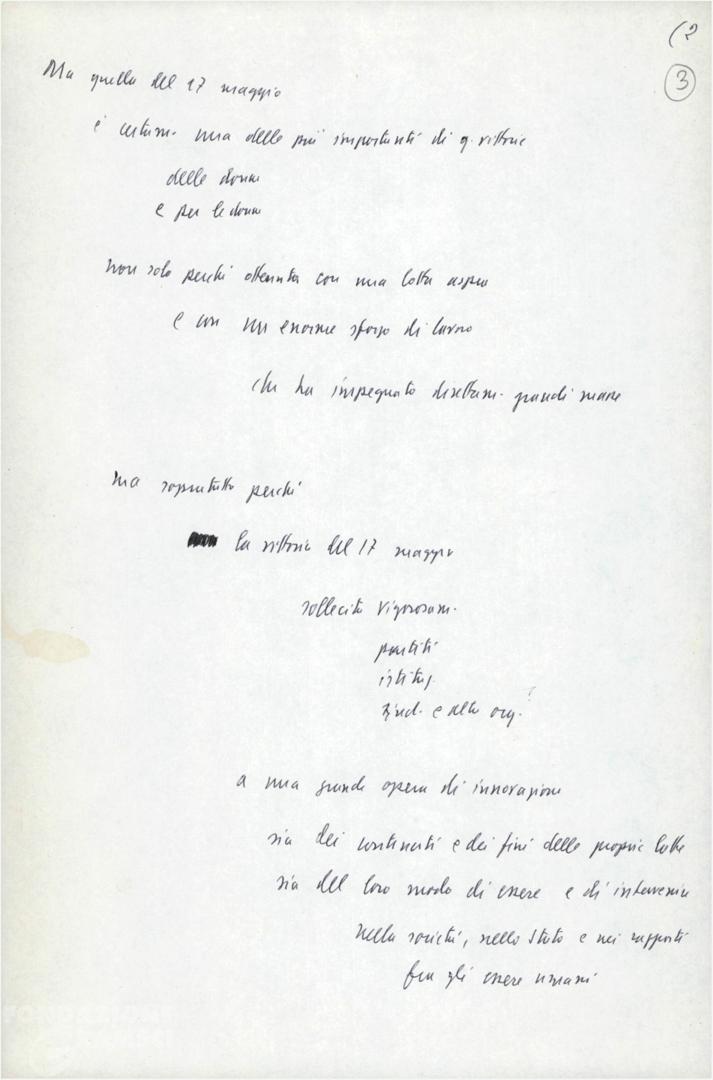 (2
3
Ma quella del 17 maggio
è certam. una delle più importanti di q. vittorie
delle donne
e per le donne
non solo perché ottenuta con una lotta aspra
e con un enorme sforzo di lavoro
che ha impegnato direttam. grandi masse
ma soprattutto perché
la vittoria del 17 maggio
sollecita vigorosam.
partiti
istituz.
sind. e altre org.
a una grande opera di innovazione
sia dei contenuti e dei fini delle proprie lotte
sia del loro modo di essere e di intervenire
nella società, nello Stato e nei rapporti
fra gli essere umani